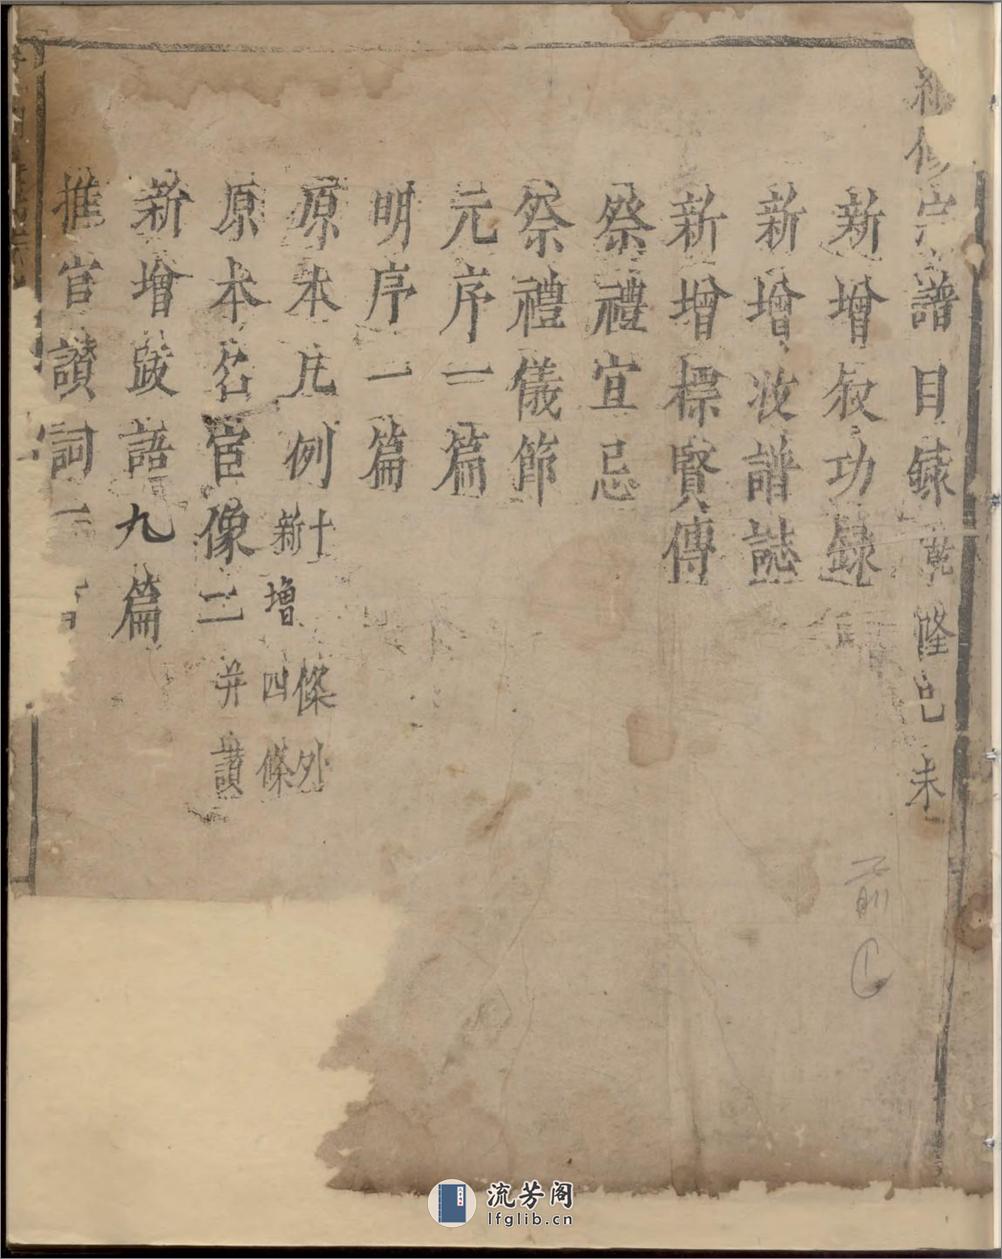 修宗譜目錄乾隆己未
新增叙功錄
新增收譜誌
新增標賢傳
祭禮宜忌
祭禮儀節
元序一篇
明序一篇
原本凡例十條外新增四條
原本名宦像二并讃
新增跋語九篇
推官讃詞一
流芳阁
lfglib.cn